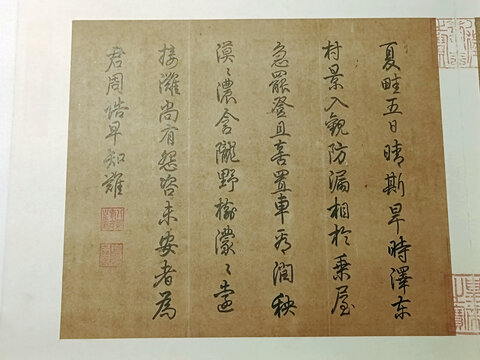 夏畦五日晴斯旱時澤東
村景入觀防漏相於乘屋
急罷登且喜置車爲潤秧
漠〻濃含隴野樹濛〻遠
接灘尚有怨咨未安者為
君周浩早知難